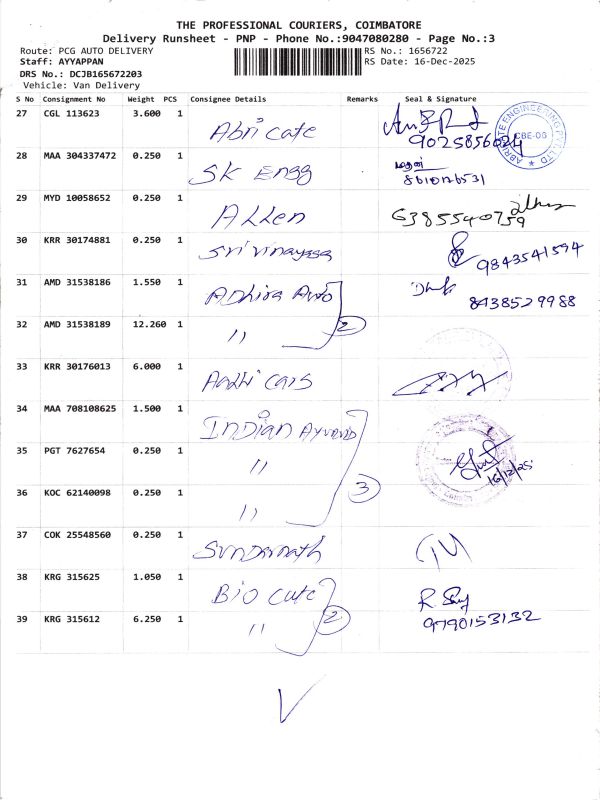 THE PROFESSIONAL COURIERS, COIMBATORE
Delivery Runsheet - PNP - Phone No.:9047080280 - Page No.:3
Route: PCG AUTO DELIVERY RS No.: 1656722
Staff: AYYAPPAN RS Date: 16-Dec-2025
DRS No.: DCJB165672203
Vehicle: Van Delivery
S No Consignment No Weight PCS Consignee Details Remarks Seal & Signature
27 CGL 113623 3.600 1 Abricate 9025856024
CBE-06
28 MAA 304337472 0.250 1 SK Engg மதன்
8610126531
29 MYD 10058652 0.250 1 Allen 6385540759
30 KRR 30174881 0.250 1 Sri vinayaga 9843541594
31 AMD 31538186 1.550 1 Adhira Auto
8438529988
32 AMD 31538189 12.260 1 " 2
33 KRR 30176013 6.000 1 Aadhi cars
34 MAA 708108625 1.500 1 Indian Ayurved
35 PGT 7627654 0.250 1 " 16/12/25
36 KOC 62140098 0.250 1 " 3
37 COK 25548560 0.250 1 Sundarnath
38 KRG 315625 1.050 1 Bio cute
39 KRG 315612 6.250 1 " 2 9790153132